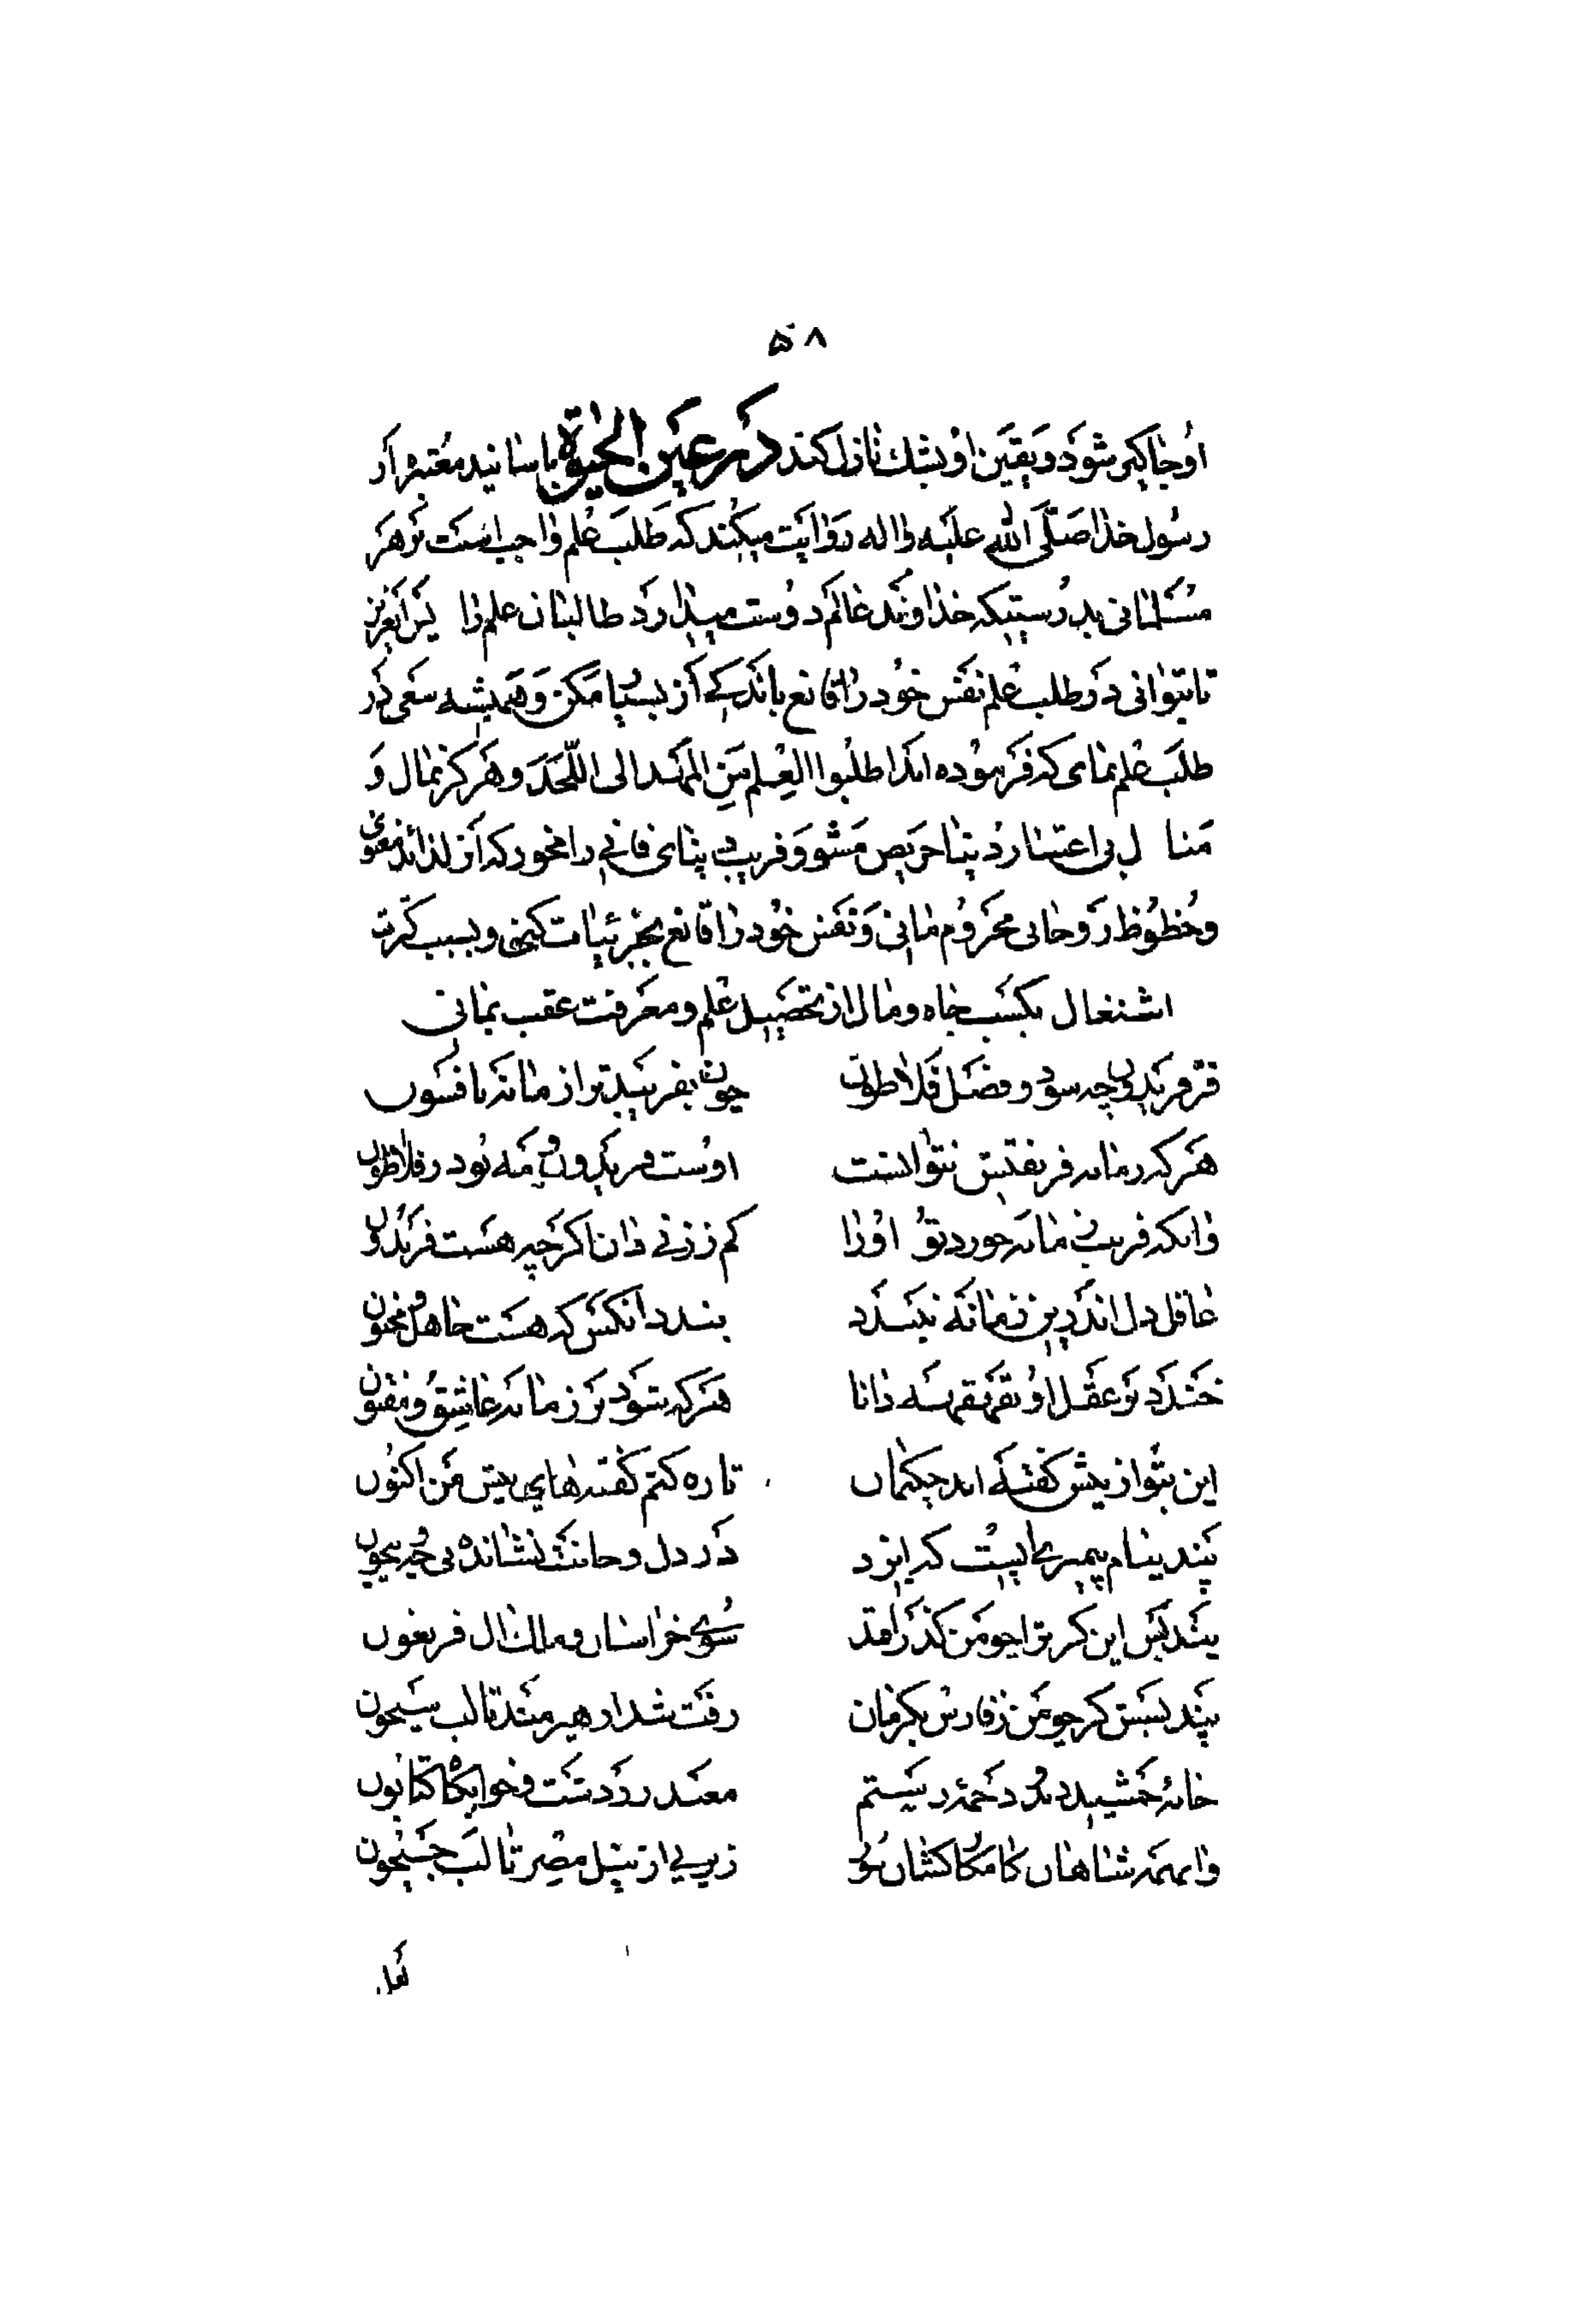 ۵۸
او جایگیر شود و یقین او بشک تنازل کند در عین الحیوة باسانید معتبره از
رسول خدا صلّی الله علیه واله روایت میکند که طلب علم واجب است بر هر
مسلمانی بدرستیکه خداوند عالم دوست میدارد طالبان علم را پس ای عزیز
تا بتوانی در طلب علم نفس خود را قانع باندکی از بسیار مکن و همیشه سعی در
طلب علم نمای که فرموده اند اطلبوا العلم من المهد الی اللّحد و هرگز بمال و
منال بی اعتبار دنیا حریص مشو و فریب دنیای فانی را مخور که از لذائذ معنوی
و حظوظ روحانی محروم مانی و نفس خود را قانع بجزئیات کنی و بسبب کثرت
اشتغال بکسب جاه و مال از تحصیل علم و معرفت عقب بمانی
فر فریدون چه سود و فضل فلاطون چون بفریبد ترا زمانه بافسون
هر که زمانه فریفتنش نتوانست اوست فریدون و مه بود ز فلاطون
وانکه فریب زمانه خورد تو او را کم ز زنی دان اگرچه هست فریدون
عاقل دل اندرین زمانه نبندد بندد انکس که هست جاهل و مجنون
خندد بر عقل او بقهقهه دانا هر که شود بر زمانه عاشق و مفتون
این بتو از پیش گفته اند حکیمان تازه کنم گفتهای پیش من اکنون
پند پیام پیمبریست که ایزد در دل و جانت نشانده بی چه و بیچون
پند بس این کز ترا چو من گذر افتد سوی خراسان و ملک ال فریغون
پند بسستش کر چو من ز فارس بکرمان رفت شد از هیرمند تا لب سیحون
خانه جمشید دید و دخمه رستم معبد زردشت و خوابگاه کتایون
وانهمه شاهان کامکار کشان بود زیر پی از نیل مصر تا لب جیحون